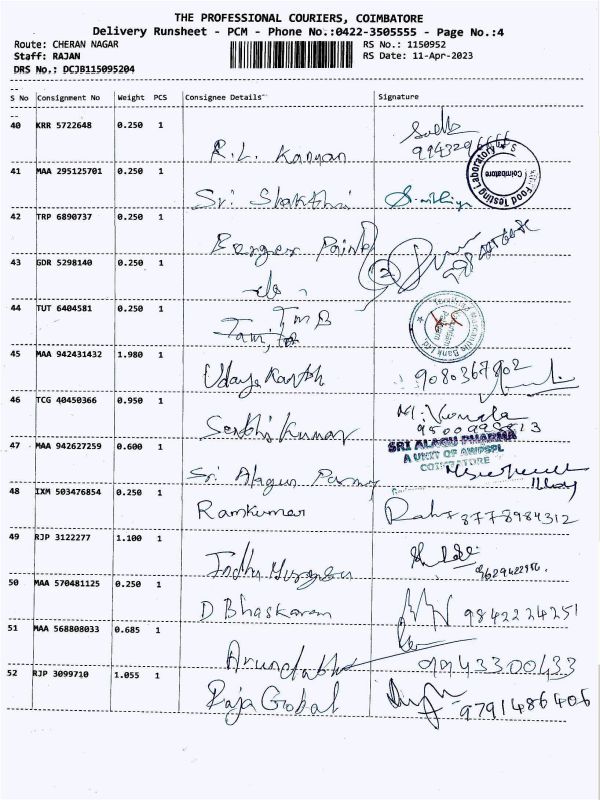 THE PROFESSIONAL COURIERS, COIMBATORE
Delivery Runsheet - PCM - Phone No.:0422-3505555 - Page No.:4
Route: CHERAN NAGAR RS No.: 1150952
Staff: RAJAN RS Date: 11-Apr-2023
DRS No.: DCJB115095204
S No Consignment No Weight PCS Consignee Details Signature
40 KRR 5722648 0.250 1
R.L. Kannan
Food Testing Laboratory
Coimbatore
41 MAA 295125701 0.250 1
Sri Shakthi
42 TRP 6890737 0.250 1
Berger Paints
43 GDR 5298140 0.250 1
2
44 TUT 6404581 0.250 1
TMB
Mercantile Bank Ltd.
45 MAA 942431432 1.980 1
Udaya Karthik 9080367802
46 TCG 40450366 0.950 1
Senthil Kumar
47 MAA 942627259 0.600 1
SRI ALAGU PHARMA
A UNIT OF AWPSPL
COIMBATORE
Sri Alagu
48 IXM 503476854 0.250 1
Ramkumar 8778984312
49 RJP 3122277 1.100 1
Indhu
50 MAA 570481125 0.250 1
D Bhaskaran 9842224251
51 MAA 568808033 0.685 1
9943300433
52 RJP 3099710 1.055 1
Raja Gobal 9791486406